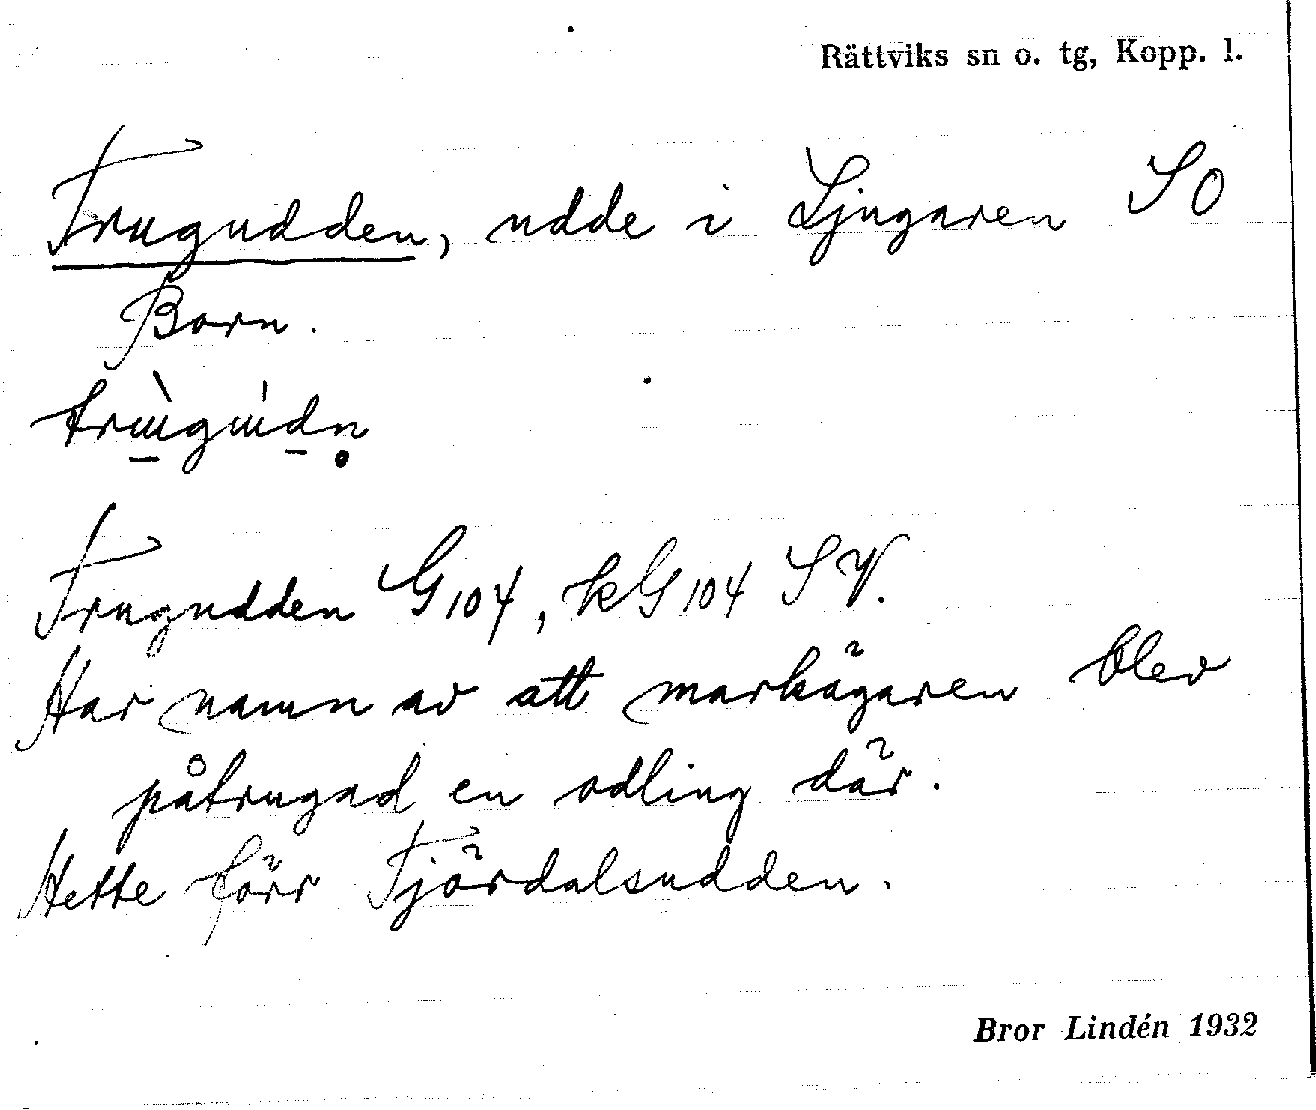 Rättviks sn o. tg, Kopp. l.
Trugudden, udde i Ljugaren SO
Born.
Trugudden G104, kG104 SV.
Har namn av att markägaren blev
påtrugad en odling där.
Hette förr Tjördalsudden.
Bror Lindén 1932